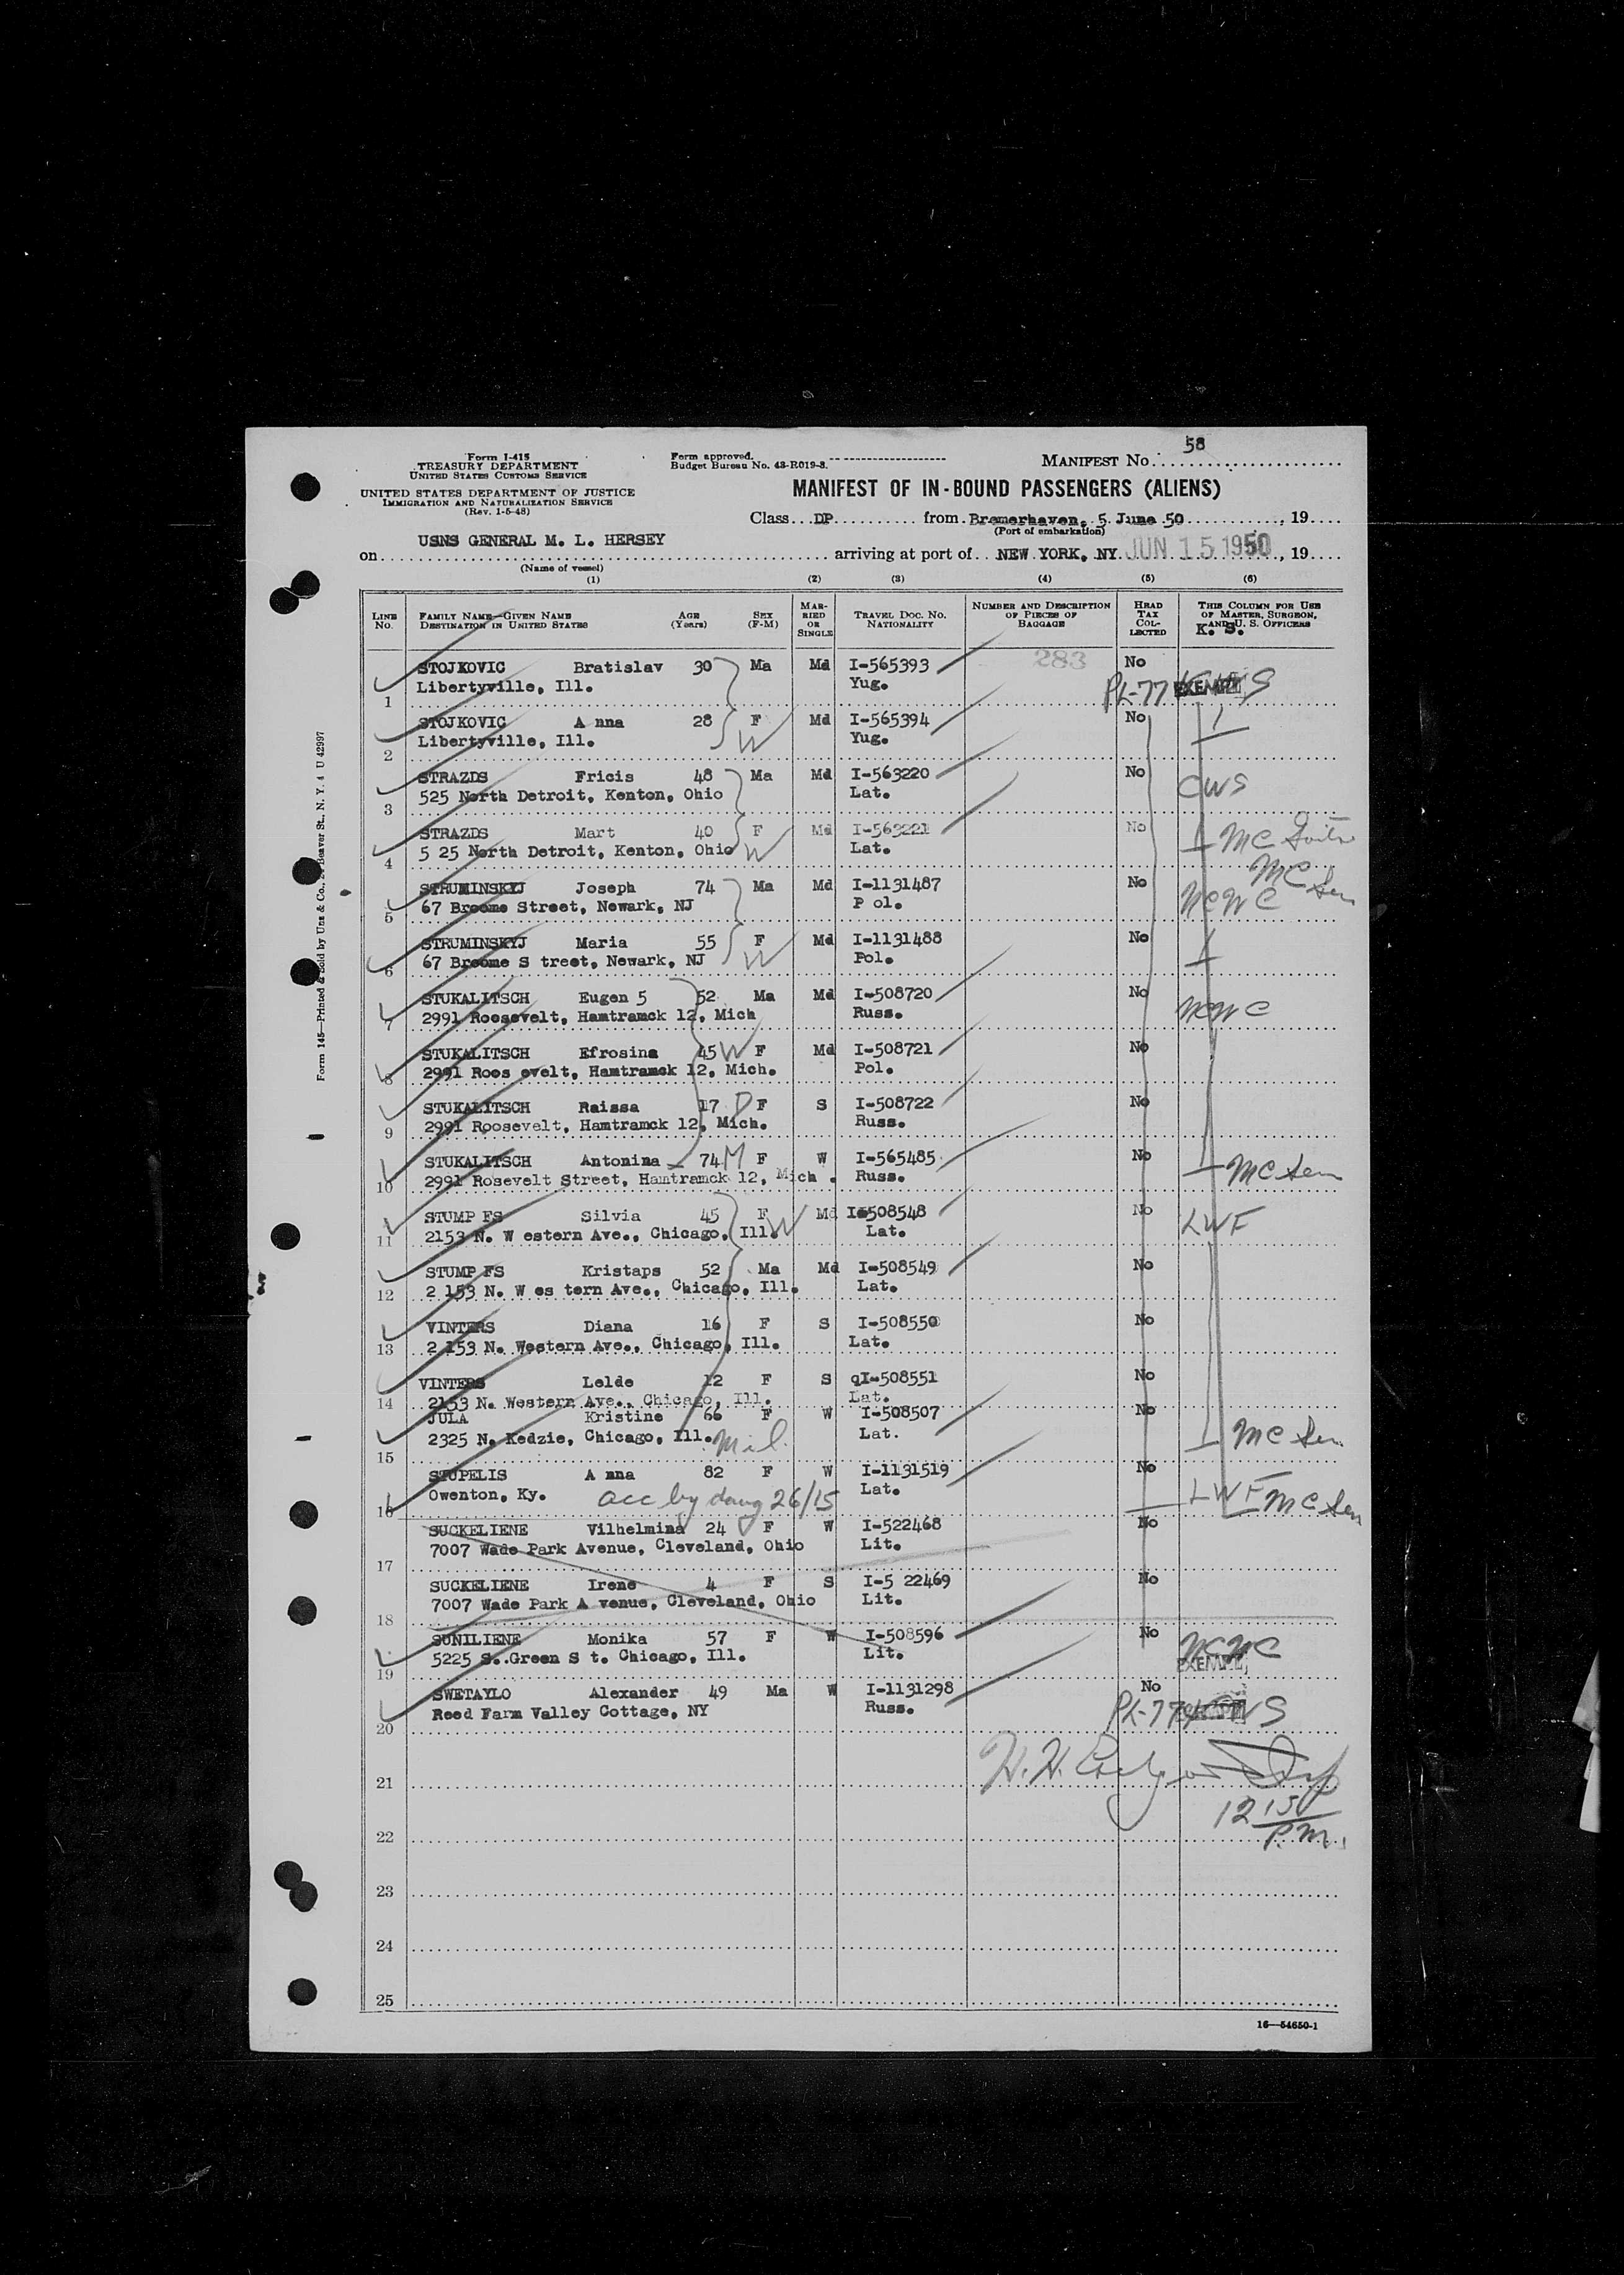 58
Form I-415
TREASURY DEPARTMENT
UNITED STATES CUSTOMS SERVICE
UNITED STATES DEPARTMENT OF JUSTICE
IMMIGRATION AND NATURALIZATION SERVICE
(Rev. 1-5-48)
Form approved.
Budget Bureau No. 43-R019-3.
MANIFEST No.
MANIFEST OF IN-BOUND PASSENGERS (ALIENS)
Class DP from Bremerhaven, 5 June 50, 19
(Port of embarkation)
on USNS GENERAL M. L. HERSEY arriving at port of NEW YORK, NY. JUN 15 1950, 19
(Name of vessel)
(1) (2) (3) (4) (5) (6)
LINE No. FAMILY NAME—GIVEN NAME DESTINATION IN UNITED STATES AGE (Years) SEX (F-M) MARRIED OR SINGLE TRAVEL DOC. No. NATIONALITY NUMBER AND DESCRIPTION OF PIECES OF BAGGAGE HEAD TAX COLLECTED THIS COLUMN FOR USE OF MASTER, SURGEON, AND U. S. OFFICERS
K. S.
STOJKOVIC Bratislav 30 Ma Md I-565393 283 No
1 Libertyville, Ill. Yug. PL-774 EXEMPT
STOJKOVIC A nna 28 F Md I-565394 No
2 Libertyville, Ill. W Yug.
STRAZDS Fricis 48 Ma Md I-563220 No CWS
3 525 North Detroit, Kenton, Ohio Lat.
STRAZDS Mart 40 F Md I-563221 No MC
4 5 25 North Detroit, Kenton, Ohio W Lat.
STRUMINSKYJ Joseph 74 Ma Md I-1131487 No NCWC MC Sen
5 67 Broome Street, Newark, NJ P ol.
STRUMINSKYJ Maria 55 F Md I-1131488 No
6 67 Broome S treet, Newark, NJ W Pol.
STUKALITSCH Eugen 5 52 Ma Md I-508720 No NCWC
7 2991 Roosevelt, Hamtramck 12, Mich Russ.
STUKALITSCH Efrosina 45 W F Md I-508721 No
8 2991 Roos evelt, Hamtramck 12, Mich. Pol.
STUKALITSCH Raissa 17 D F S I-508722 No
9 2991 Roosevelt, Hamtramck 12, Mich. Russ.
STUKALITSCH Antonina 74 M F W I-565485 No MC Sen
10 2991 Rosevelt Street, Hamtramck 12, Mich . Russ.
STUMP FS Silvia 45 F W Md I-508548 No LWF
11 2153 N. W estern Ave., Chicago, Ill. Lat.
STUMP FS Kristaps 52 Ma Md I-508549 No
12 2 153 N. W es tern Ave., Chicago, Ill. Lat.
VINTERS Diana 16 F S I-508550 No
13 2 153 N. Western Ave., Chicago, Ill. Lat.
VINTERS Lelde 12 F S qI-508551 No
14 2153 N. Western Ave., Chicago, Ill. Lat.
JULA Kristine 66 F W I-508507 No
15 2325 N. Kedzie, Chicago, Ill. M i l. Lat. MC Sen
STUPELIS A nna 82 F W I-1131519 No
16 Owenton, Ky. acc by daug 26/15 Lat. LWF MC Sen
SUCKELIENE Vilhelmina 24 F W I-522468 No
17 7007 Wade Park Avenue, Cleveland, Ohio Lit.
SUCKELIENE Irene 4 F S I-5 22469 No
18 7007 Wade Park A venue, Cleveland, Ohio Lit.
SUNILIENE Monika 57 F W I-508596 No NCWC
19 5225 S. Green S t. Chicago, Ill. Lit. EXEMPT
SWETAYLO Alexander 49 Ma W I-1131298 No
20 Reed Farm Valley Cottage, NY Russ. PL-774
21
12 15 P.M.
22
23
24
25
16—54650-1
Form 145—Printed & Sold by Unz & Co., 24 Beaver St., N. Y. 4 U 42997